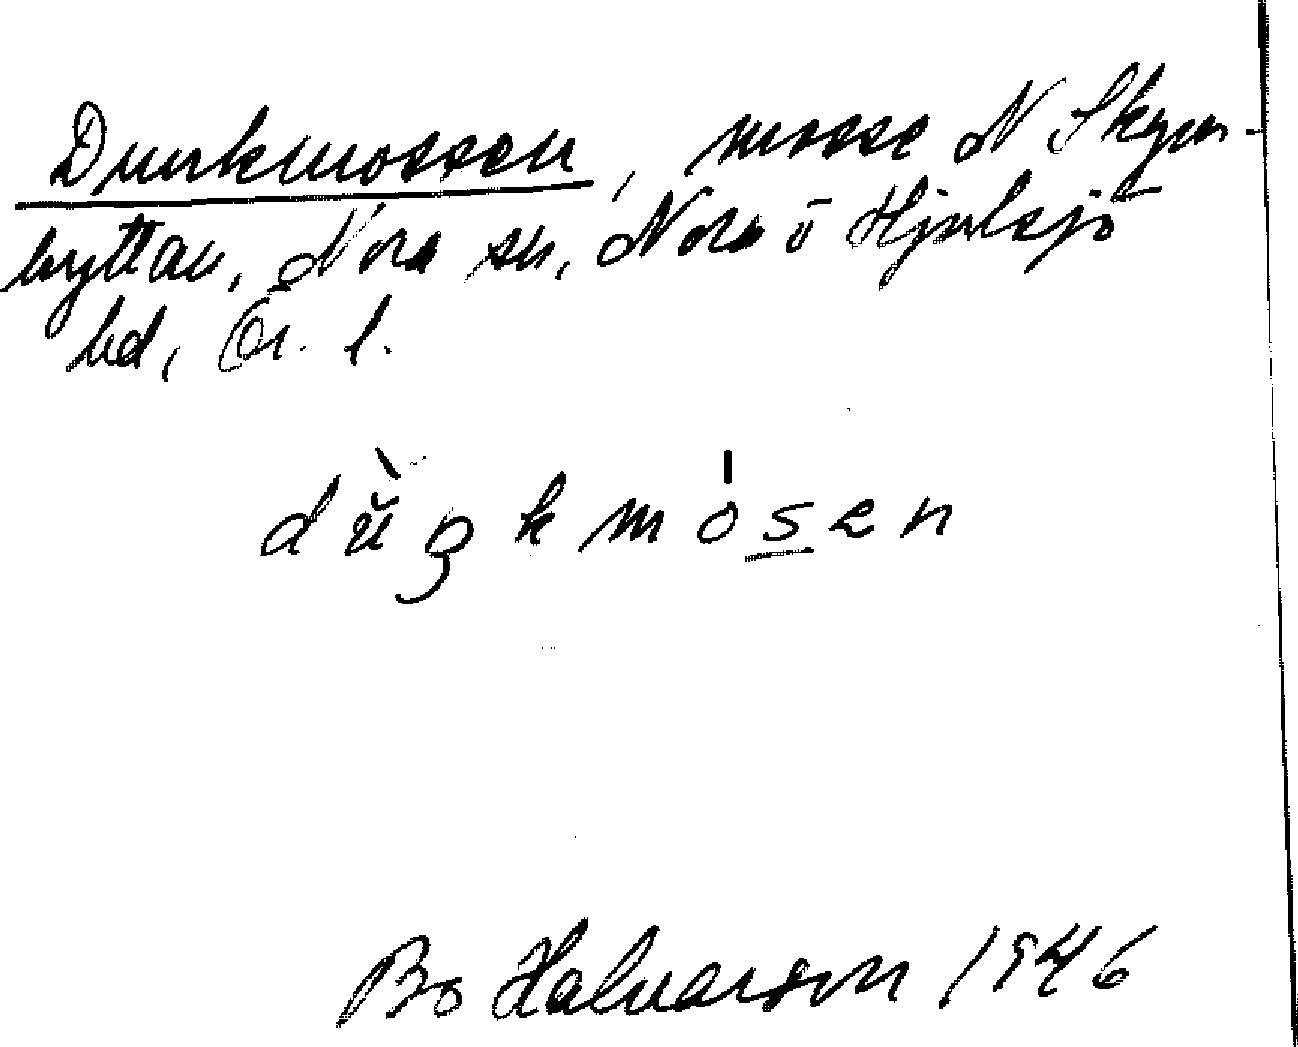 Dunkmossen, mosse N Skrum-
hyttan, Nora sn, Nora o Hjulsjö
bd, Ör. l.
dŭŋkmosen
Bo Halvarson 1946